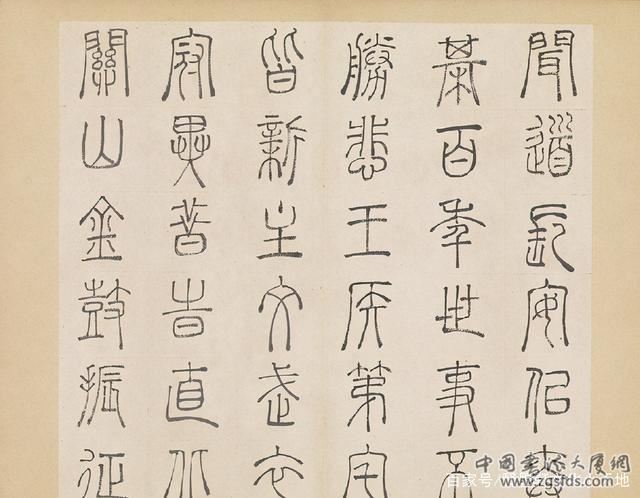 聞道長安佀
棊百年世事不
勝悲王矦第宅
皆新主文武衣
冠異昔旹直北
關山金鼓振征
中國书法大厦網
百家号/
地
www.zgsfds.com